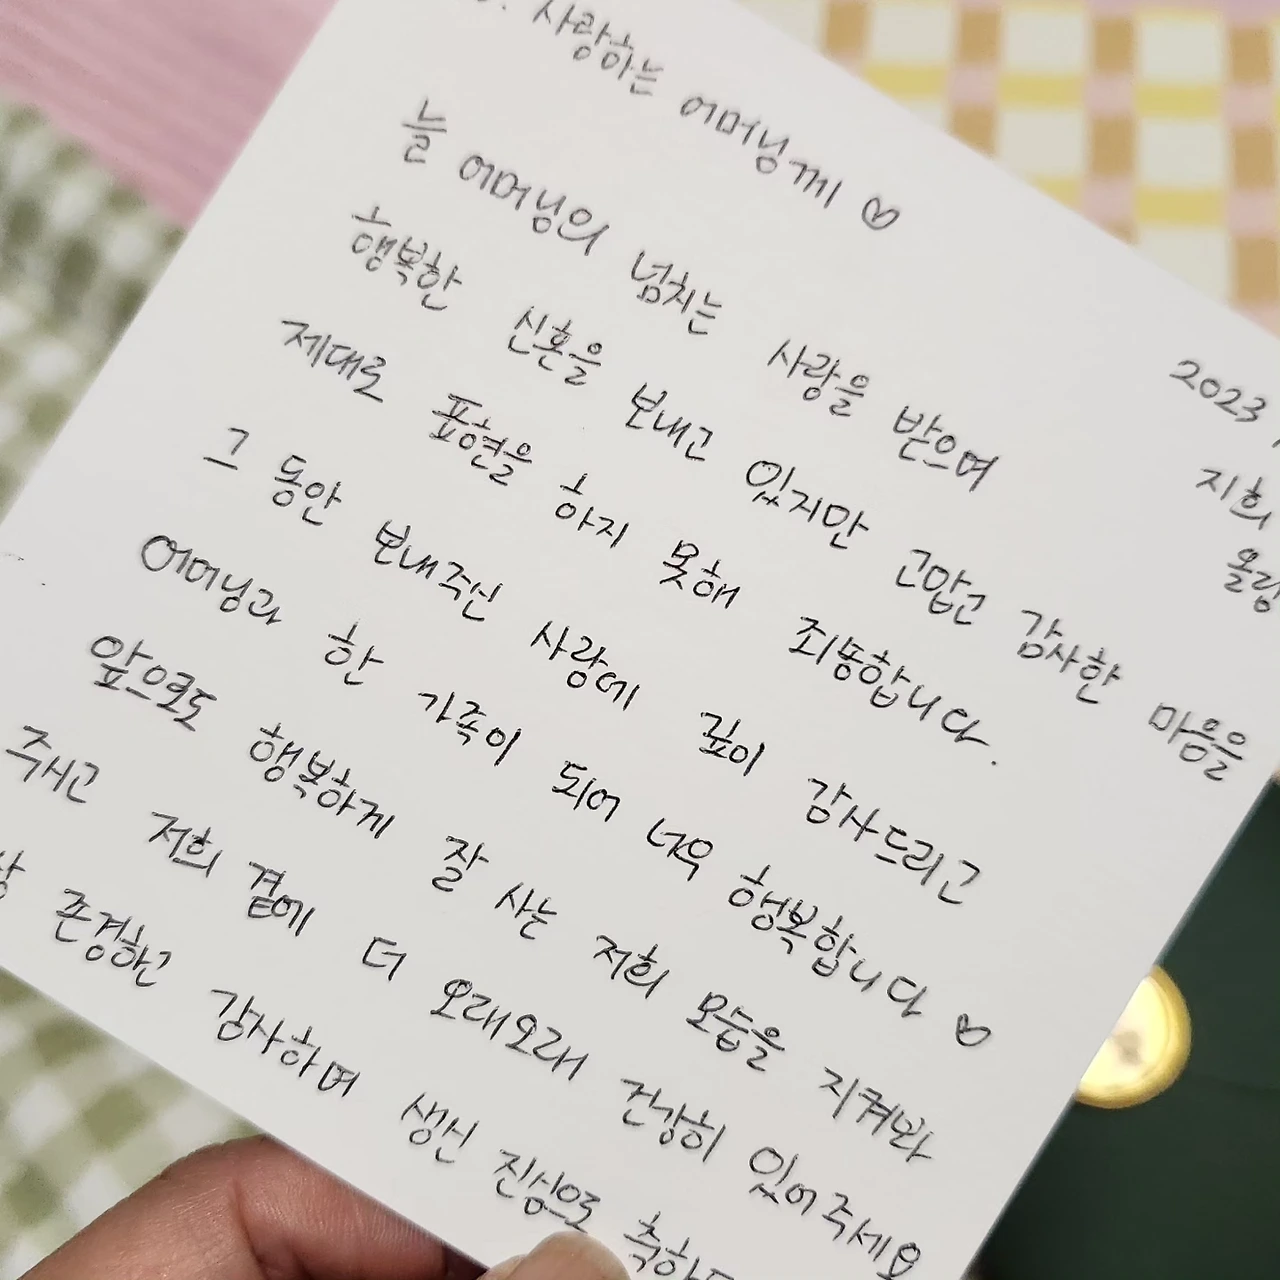 사랑하는 어머님께 ♡
늘 어머님의 넘치는 사랑을 받으며
행복한 신혼을 보내고 있지만 고맙고 감사한 마음을
제대로 표현을 하지 못해 죄송합니다.
그 동안 보내주신 사랑에 깊이 감사드리고
어머님과 한 가족이 되어 너무 행복합니다 ♡
앞으로도 행복하게 잘 사는 저희 모습을 지켜봐
주시고 저희 곁에 더 오래오래 건강히 있어주세요
존경하고 감사하며 생신 진심으로
2023
지희